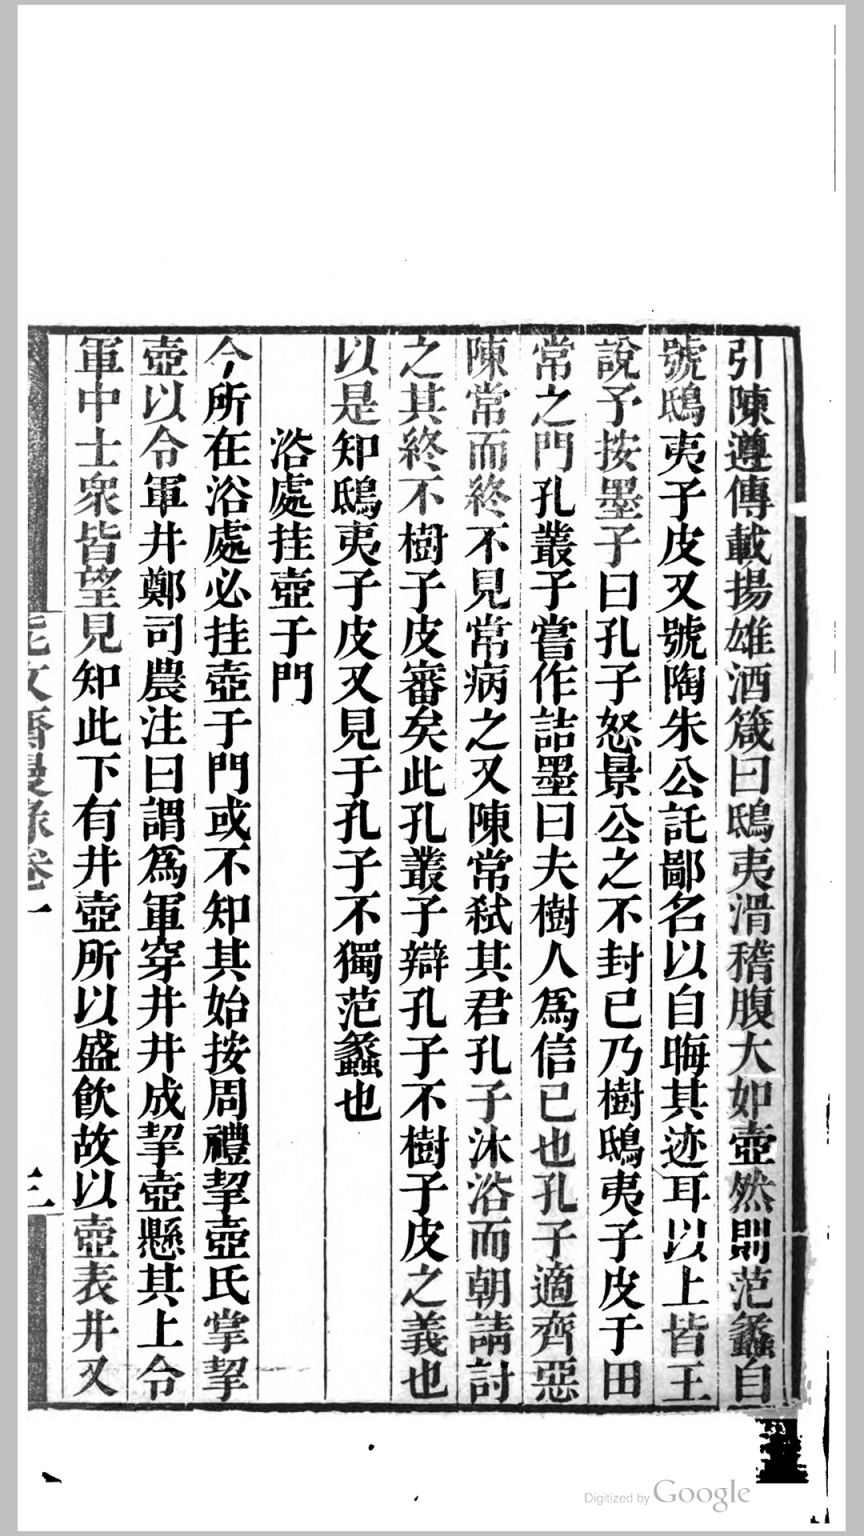 引陳遵傳載揚雄酒箴曰鴟夷滑稽腹大如壺然則范蠡自
號鴟夷子皮又號陶朱公託鄙名以自晦其迹耳以上皆王
說予按墨子曰孔子怒景公之不封已乃樹鴟夷子皮于田
常之門孔叢子嘗作詰墨曰夫樹人爲信已也孔子適齊惡
陳常而終不見常病之又陳常弒其君孔子沐浴而朝請討
之其終不樹子皮審矣此孔叢子辯孔子不樹子皮之義也
以是知鴟夷子皮又見于孔子不獨范蠡也
浴處挂壺于門
今所在浴處必挂壺于門或不知其始按周禮挈壺氏掌挈
壺以令軍井鄭司農注曰謂爲軍穿井井成挈壺懸其上令
軍中士衆皆望見知此下有井壺所以盛飮故以壺表井又
能改齋漫錄卷一
三
Digitized by Google